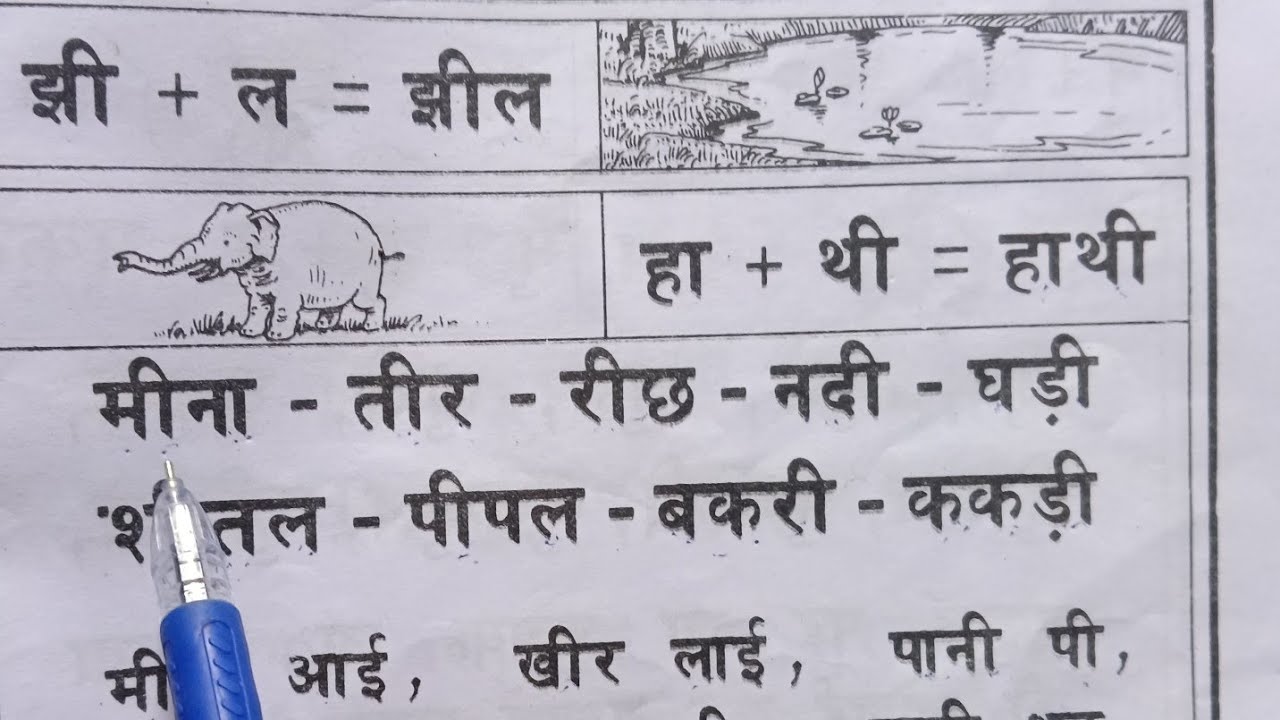 झी + ल = झील
हा + थी = हाथी
मीना - तीर - रीछ - नदी - घड़ी
पीपल - बकरी - ककड़ी
आई, खीर लाई, पानी पी,